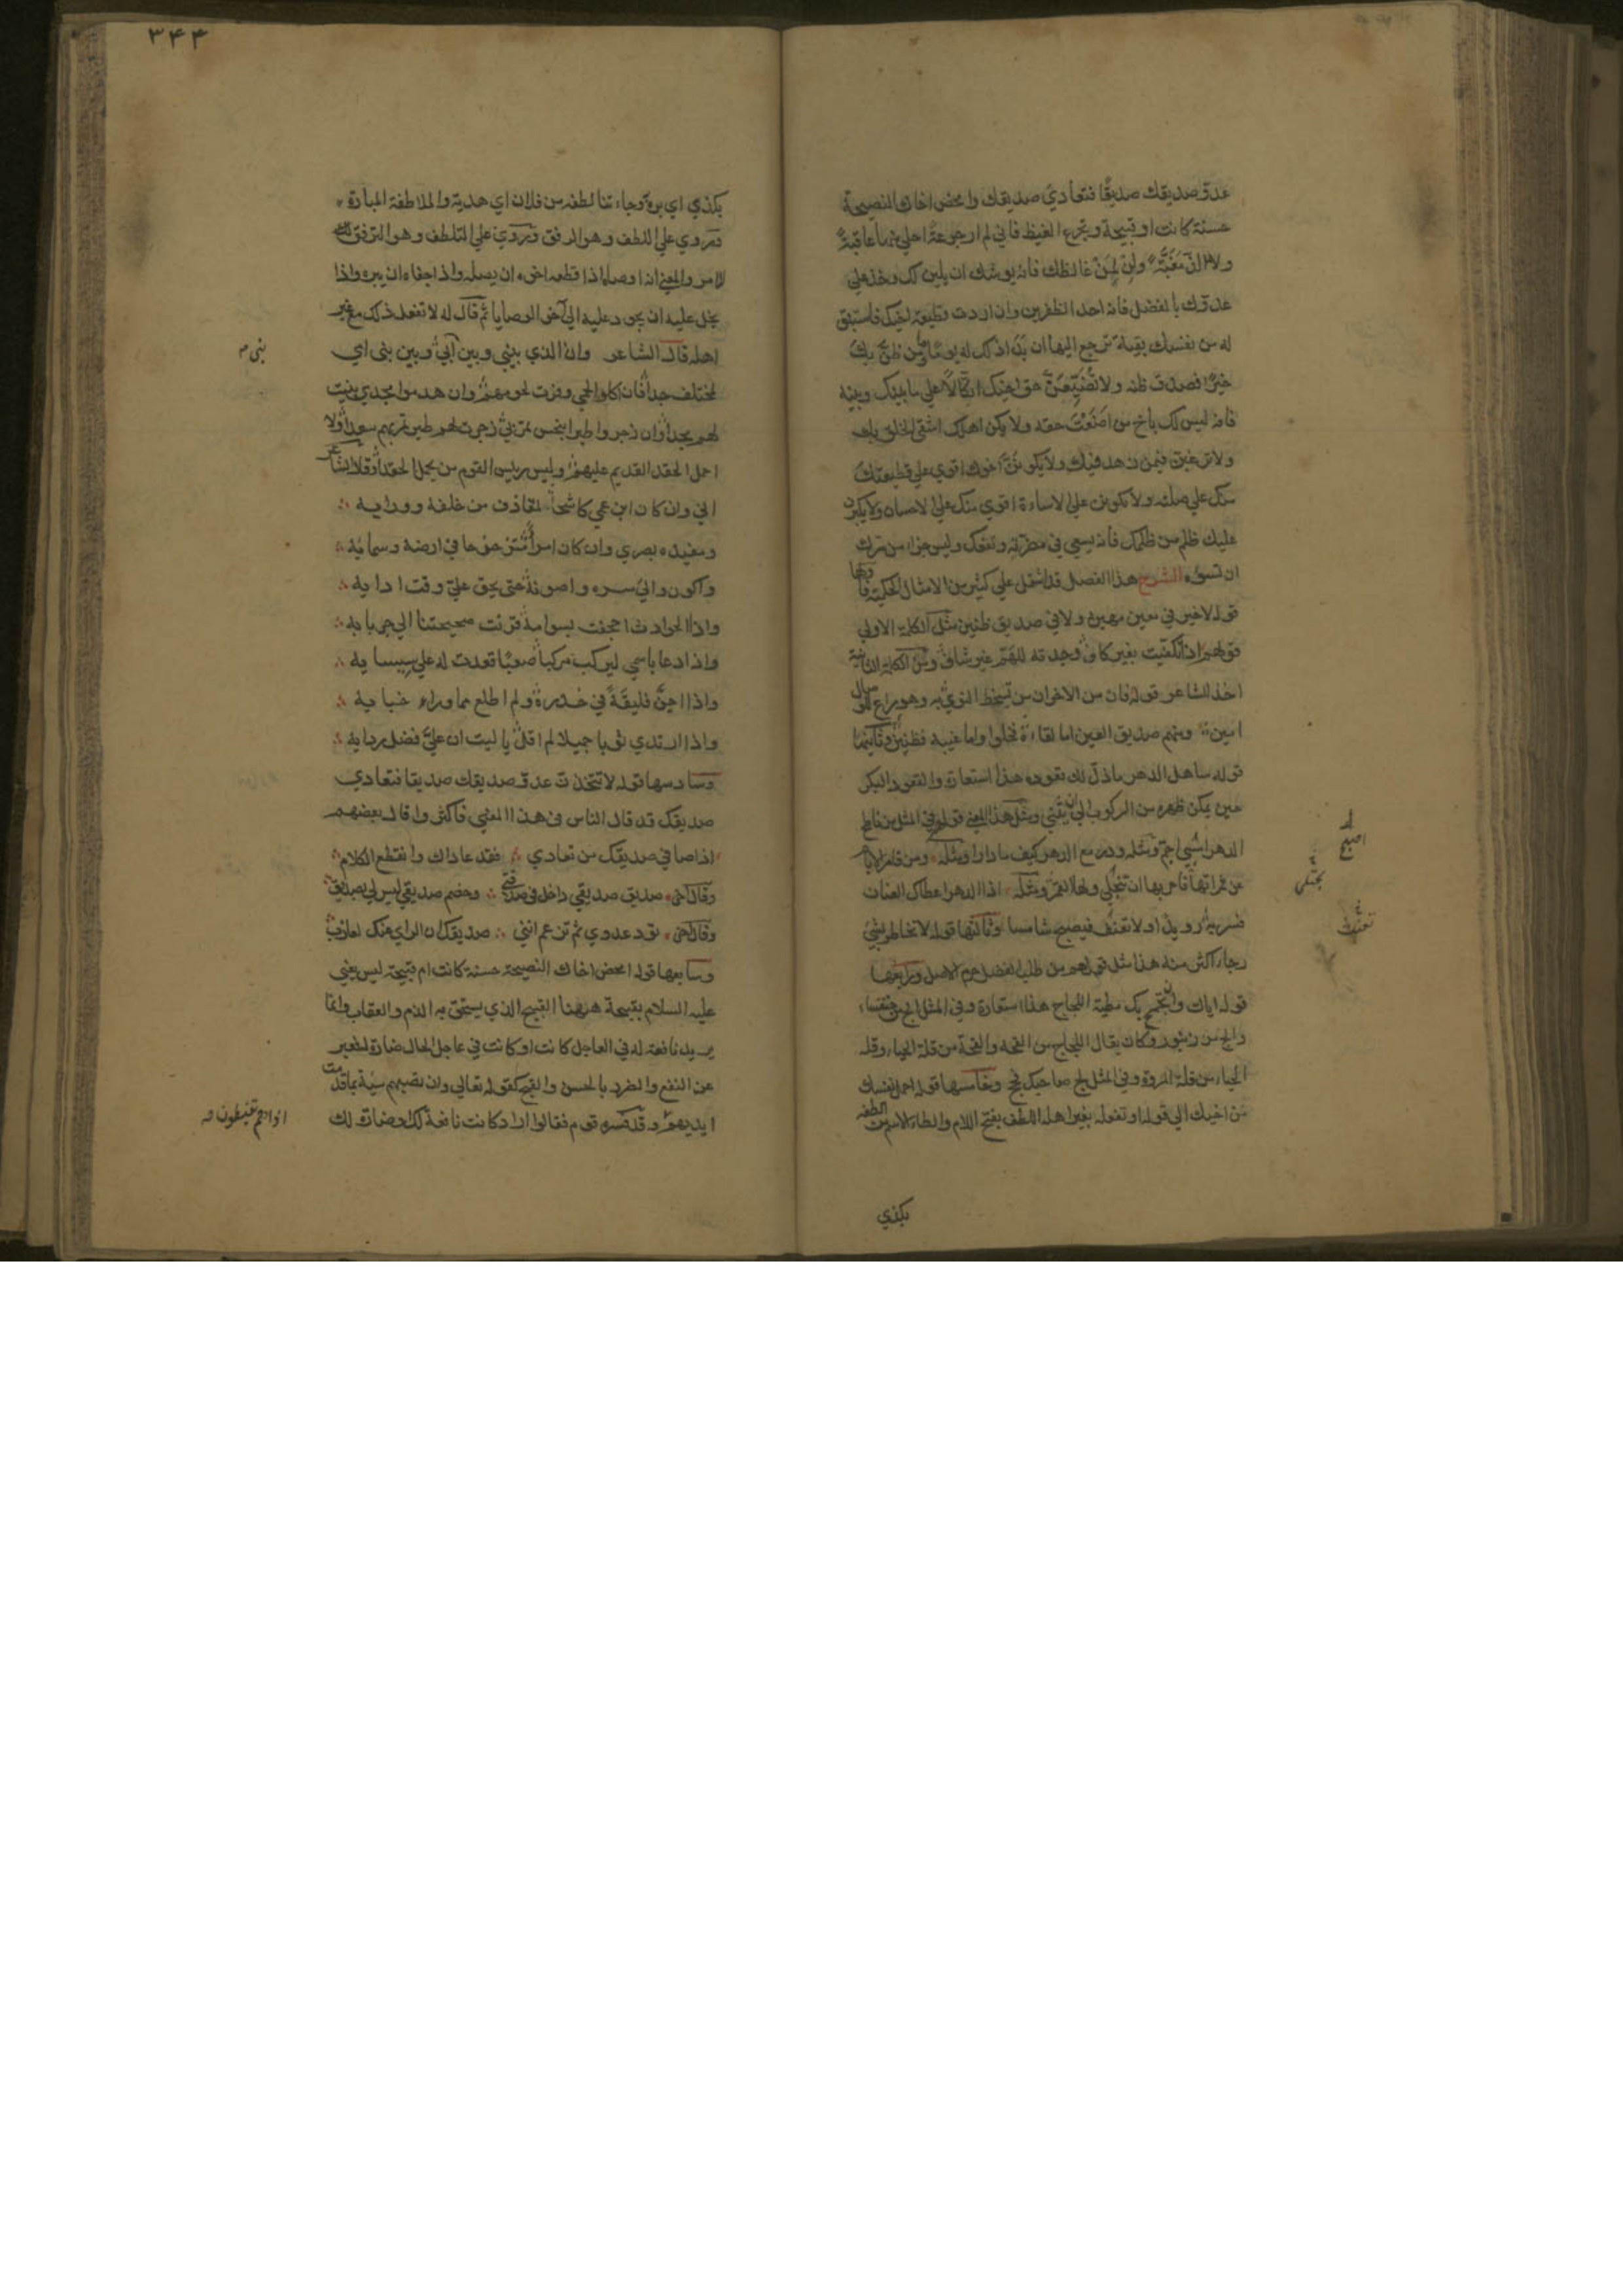 عدوّ صديقك صديقًا فتعادي صديقك وامحض اخاك النصيحة
حسنة كانت او قبيحة وتجرع الغيظ فاني لم ار جرعة احلي منها عاقبة
ولا الذّ مغبّة ولن لمن غالظك فانه يوشك ان يلين لك وخذ علي
عدوّك بالفضل فانه احد الظفرين وان اردت قطيعة اخيك فاستبق
له من نفسك بقية ترجع اليها ان بدا ذلك له يومًا ومن ظنّ بك
خيرًا فصدق ظنه ولا تضيّعنّ حق اخيك اتكالًا علي ما بينك وبينه
فانه ليس لك باخ من اضعت حقه ولا يكن اهلك اشقي الخلق بك
ولا ترغبن فيمن زهد فيك ولا يكوننّ اخوك اقوي علي قطيعتك
منك علي صلته ولا يكونن علي الاساءة اقوي منك علي الاحسان ولا يكبرن
عليك ظلم من ظلمك فانه يسعي في مضرّته ونفعك وليس جزاء من سرك
ان تسؤه الشرح هذا الفصل قد اشتمل علي كثير من الامثال الحكمية فاولها
قوله لا خير في معين مهين ولا في صديق ظنين مثل الكلمة الاولي
قولهم اذا تكفيت بغير كاف وجدته للهم غير شاف ومن الكلمة الثانية
اخذ الشاعر قوله فان من الاخوان من شحط النوي به وهو راع للوصال
امين ومنهم صديق العين اما لقاءه فحلو واما غيبه فظنين وثانيتها
قوله ساهل الدهر ما ذلّ لك قعوده هذا استعارة والقعود البكر
حين يمكن ظهره من الركوب الي ان يثني ومثل هذا المعني قولهم في المثل من ناطح
الدهر اصبح اجمّ ومثله ودر مع الدهر كيف ما دارا ومثله ومن قامر الايام
عن ثمراتها فاحر بها ان تنجلي ولها القمر ومثله اذا الدهر اعطاك العنان
فسر به رويدًا ولا تعنف فيصبح شامسا وثالثتها قوله لا تخاطر بشئ
رجاء اكثر منه هذا مثل قولهم من طلب الفضل حرم الاصل ورابعها
قوله اياك وان تجمح بك مطية اللجاج هذا استعارة وفي المثل الج من خنفساء
والج من زنبور وكان يقال اللجاج من القحة والقحة من قلة الحياء وقلة
الحياء من قلة المروة وفي المثل لج صاحبك فحج وخامسها قوله احمل نفسك
من اخيك الي قوله او تفعله بغير اهله اللطف بفتح اللام والطاء الاسم من الطفه
بكذي
اصبح
تجتلي
تعنف
٣٤٤
بكذي اي برّه وجاءتنا لطفة من فلان اي هدية والملاطفة المبارّة
ويروي علي اللطف وهو الرفق ويروي علي التلطف وهو الترفق
للامر والمعني انه اوصاه اذا قطعه اخوه ان يصله واذا جفاه ان يبره واذا
بخل عليه ان يجود عليه الي آخر الوصايا ثم قال له لا تفعل ذلك مع غير
اهله قال الشاعر وان الذي بيني وبين ابي وبين بني ابي
لمختلف جدا فان اكلوا لحمي وفرت لحومهم وان هدموا مجدي بنيت
لهم مجدا وان زجروا طيرا بنحس تمرّ بي زجرت لهم طير تمر بهم سعدا ولا
احمل الحقد القديم عليهم وليس رئيس القوم من يحمل الحقدا وقال الشاعر
اني وان كان ابن عمي كاشحا لمقاذف من خلفه وورايه
ومفيده بصري وان كان امرأ متزحزحا في ارضه وسمايه
واكون والي سره واصونه حتي يحق عليّ وقت ادايه
واذا الحوادث اجحفت بسوامه قرنت صحيحتنا الي جربايه
واذا دعا باسمي ليركب مركبا صعبًا قعدت له علي سيسايه
واذا اجنّ فليقة في خدره لم اطلع مما وراء خبايه
واذا ارتدي ثوبا جميلا لم اقل يا ليت ان عليّ فضل ردايه
وسادسها قوله لا تتخذن عدوّ صديقك صديقا فتعادي
صديقك قد قال الناس في هذا المعني فاكثروا قال بعضهم
اذا صافي صديقك من تعادي فقد عاداك وانقطع الكلام
وقال اخر صديق صديقي داخل في صداقتي وخصم صديقي ليس لي بصديق
وقال اخر تود عدوي ثم تزعم انني صديقك ان الراي عنك لعازب
وسابعها قوله امحض اخاك النصيحة حسنة كانت ام قبيحة ليس يعني
عليه السلام بقبيحة ههنا القبيح الذي يستحق به الذم والعقاب وانما
يريد نافعة له في العاجل كانت او كانت في عاجل الحال ضارة فعبر
عن النفع والضرر بالحسن والقبح كقوله تعالي وان تصبهم سيئة بما قدمت
ايديهم وقد فسره قوم فقالوا اراد كانت نافعة لك او ضارة لك
بني م
اذا هم يقنطون